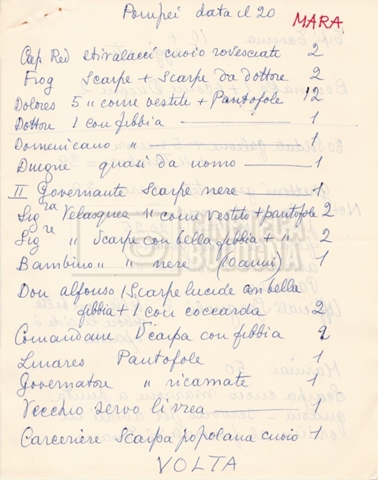 Pompei data il 20
MARA
Cap Red stivalacci cuoio rovesciate 2
Frog Scarpe + Scarpe da dottore 2
Dolores 5 " come vestite + Pantofole 12
Dottore 1 con fibbia 1
Domenicano " 1
Duegne quasi da uomo 1
II Governante Scarpe nere 1
Sig.ra Velasquez " come vestito + pantofole 2
Sig.re " Scarpe con bella fibbia + " 2
Bambino " " nere (10 anni) 1
Don Alfonso 1 Scarpe lucide con bella
fibbia + 1 con coccarda 2
Comandante Scarpa con fibbia 2
Linares Pantofole 1
Governatore " ricamate 1
Vecchio servo livrea 1
Carceriere Scarpa popolana cuoio 1
VOLTA